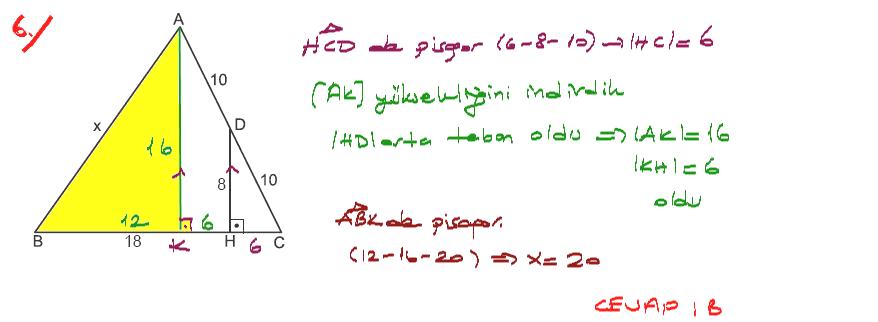 6.)
A
10
x
D
16
8
10
12
6
B
18
K
H
6
C
HCD de pisagor (6-8-10) → |HC| = 6
[AK] yüksekliğini indirdik
|HD| orta taban oldu ⇒ |AK| = 16
|KH| = 6
oldu
ABK de pisagor.
(12-16-20) ⇒ x = 20
CEVAP : B